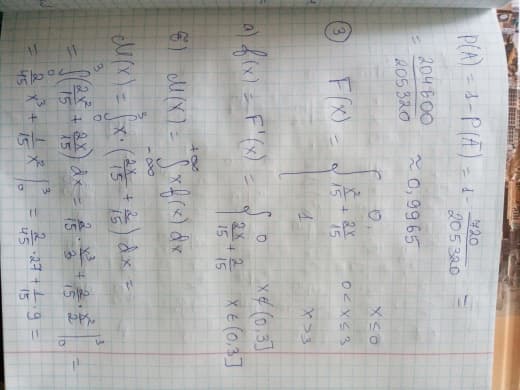 P(A) = 1 - P(Ā) = 1 - 720/205320 =
= 204600/205320 ≈ 0,9965
③ F(x) = { 0, x ≤ 0
x²/15 + 2x/15 0 < x ≤ 3
1 x > 3
а) f(x) = F'(x) = { 0 x ∉ (0,3]
2x/15 + 2/15 x ∈ (0,3]
б) M(x) = ∫_{-∞}^{+∞} x f(x) dx
M(x) = ∫_0^3 x · (2x/15 + 2/15) dx =
= ∫_0^3 (2x²/15 + 2x/15) dx = 2/15 · x³/3 + 2/15 · x²/2 |_0^3 =
= 2/45 x³ + 1/15 x² |_0^3 = 2/45 · 27 + 1/15 · 9 =